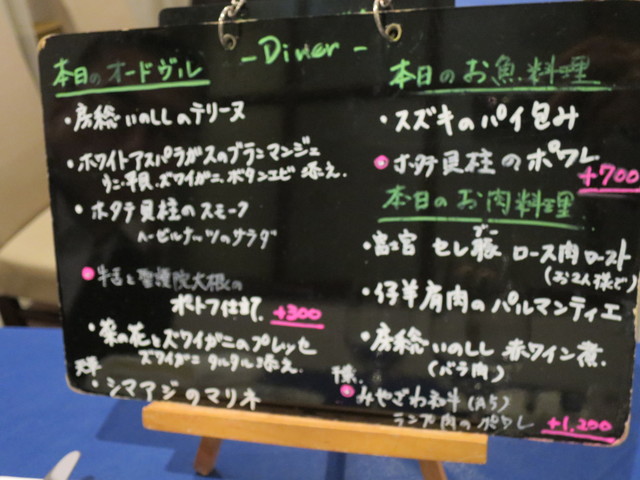 - Diner -
本日のオードヴル
・房総いのししのテリーヌ
・ホワイトアスパラガスのブランマンジェ
うに、平貝、ズワイガニ、ボタンエビ 添え.
・ホタテ貝柱のスモーク
ヘーゼルナッツのサラダ
・牛舌と聖護院大根の
ポトフ仕立 +300
・菜の花とズワイガニのプレッセ
ズワイガニ タルタル添え.
天草
・シマアジのマリネ
本日のお魚料理
・スズキのパイ包み
・ホタテ貝柱のポワレ
+700
本日のお肉料理
・富士宮 セレ豚 ロース肉ロースト
・仔羊肩肉のパルマンティエ
・房総いのしし 赤ワイン煮.
(バラ肉)
千葉.
・みやざわ和牛(A5)
ランプ肉のポワレ +1,200